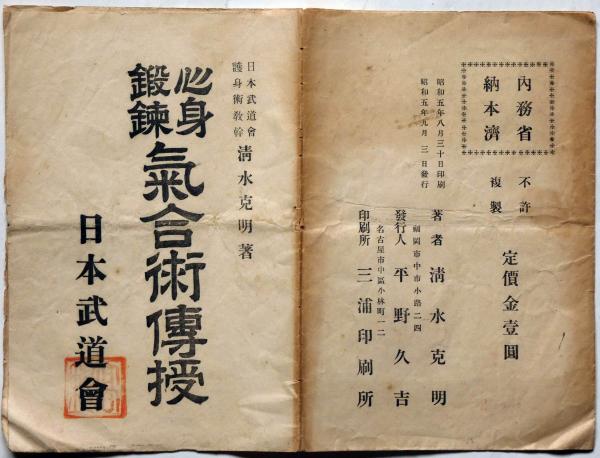 內務省
納本濟
不許
複製
定價金壹圓
昭和五年八月三十日印刷
昭和五年九月三日發行
著者 淸水克明
福岡市中市小路二四
發行人 平野久吉
名古屋市中區小林町一二
印刷所 三浦印刷所
日本武道會
護身術教幹
淸水克明著
心身
鍛鍊
氣合術傳授
日本武道會